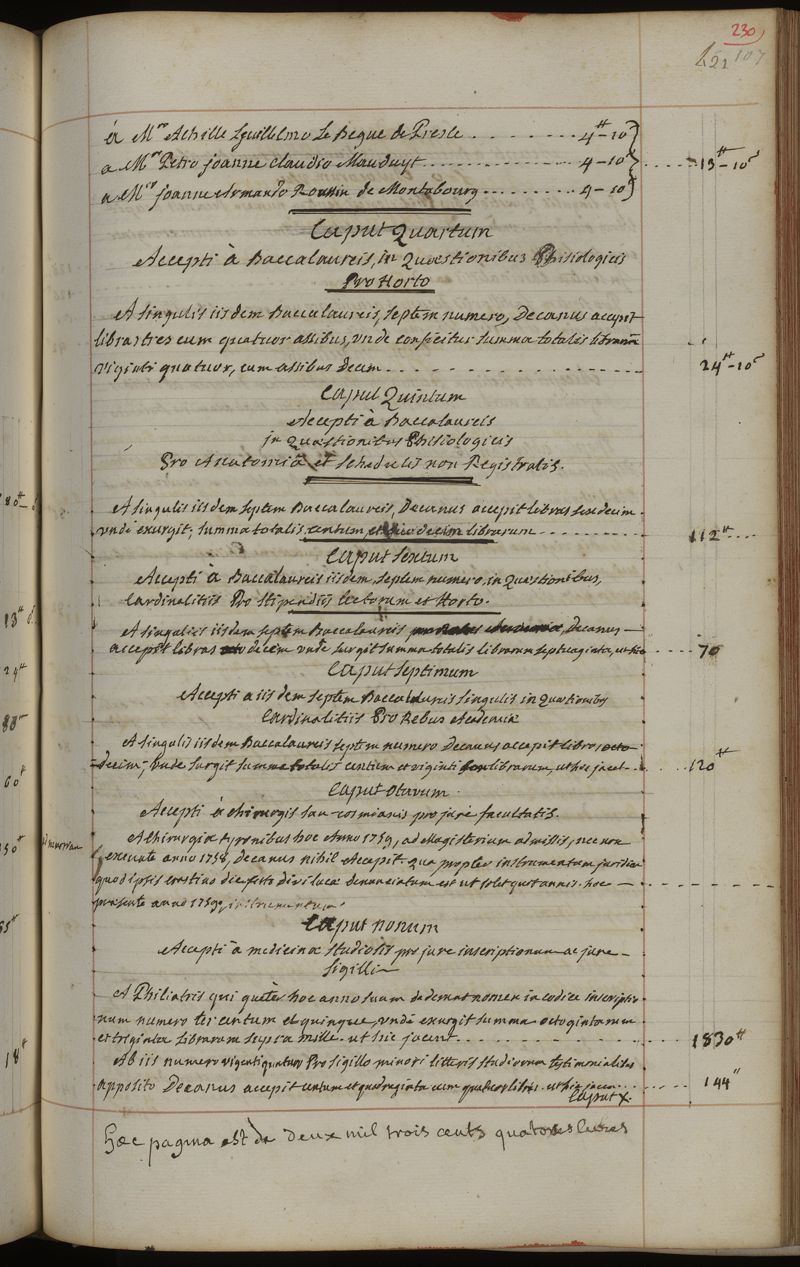 230
à Mro Achille Guillelmo Le Begue de Presle - - - - - - 4tt-10s
a Mro Petro joanne claudio Mauduyt - - - - - - 4-10s - - - 13tt-10s
a Mro joanne Armando Roussin de Montabourg - - - - - 4-10s
Caput Quartum
Accepti à Baccalaureis, in Quæstionibus Phisiologicis
Pro Horto
A singulis iisdem Baccalaureis, septem numero, Decanus accepit
libras tres cum quatuor assibus, unde conficitur summa totalis librarum
viginti quatuor, cum assibus decem - - - - - - 24tt-10s
Caput Quintum
Accepti à Baccalaureis
in Quæstionibus Phisiologicis
Pro Anatomiâ et schedulis non Registratis.
A singulis iisdem septem Baccalaureis, Decanus accepit libras sexdecim
unde exurgit, summa totalis centum, et duodecim librarum - - - - 112tt - - -
Caput Sextum
Accepti à Baccalaureis iisdem, septem numero, in Quæstionibus,
Cardinalitiis Pro stipendiis lectorum et Horto.
A singulis iisdem septem Baccalaureis Decanus
accepit libras decem unde surgit summa totalis librarum septuaginta, ut hic - - - 70
Caput Septimum
Accepti a iisdem septem Baccalaureis singulis in Quæstionibus
Cardinalitiis Pro Rebus Academiæ
A singulis iisdem Baccalaureis septem numero Decanus accepit libras octo
decim, unde surgit summa totalis centum et viginti librarum, ut hic jacet - - - 120tt
Caput Octavum.
Accepti à chirurgis san-cosmianis pro jure facultatis.
A chirurgiæ tyronibus hoc Anno 1759, ad Magisterium admissis, nec non
exeunte anno 1758, Decanus nihil Accepit qua propter instrumentum juridicum
quod ipsis crastino die festi divi lucæ denunciatum est ut solet quotannis. hoc
præsente anno 1759
Caput nonum
Accepti à medicinæ studiosis pro jure inscriptionum ac jure
Sigilli
A Philiatris qui quater hoc anno suum dederunt nomen in codice inscriptio-
num numero ter centum et quinque, unde exurgit summa octogintarum
et triginta Librarum supra mille. ut hic jacent - - - - - 1830tt
Ab iis numero viginti quatuor Pro sigillo minori litteris studiorum testimonialibus
apposito Decanus accepit centum et quadraginta cum quatuor libris. ut hic jacent - - - 144"
Caput X.
Hæc pagina est de deux mil trois cents quatorze livres